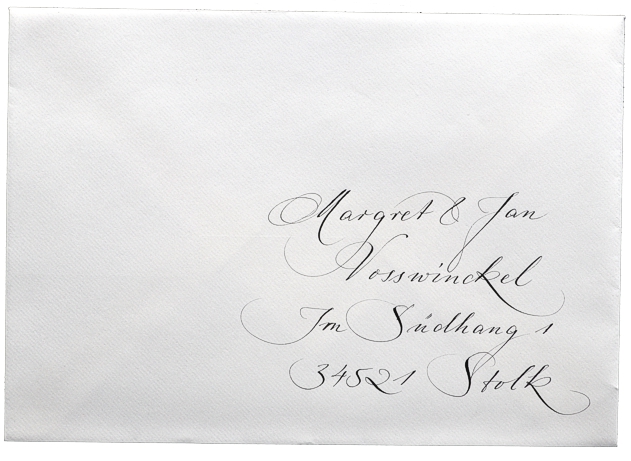 Margret & Jan
Vosswinckel
Im Südhang 1
34521 Stolk